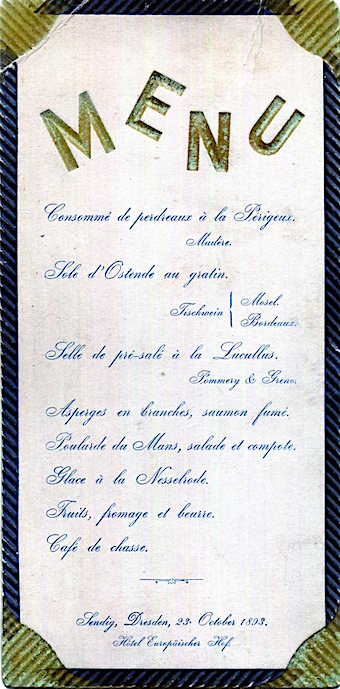 MENU
Consommé de perdreaux à la Périgeux.
Madère.
Sole d'Ostende au gratin.
Tischwein { Mosel.
Bordeaux.
Selle de pré-salé à la Lucullus.
Pommery & Greno.
Asperges en branches, saumon fumé.
Poularde du Mans, salade et compote.
Glace à la Nesselrode.
Fruits, fromage et beurre.
Café de chasse.
Sendig, Dresden, 23. October 1893.
Hôtel Europäischer Hof.